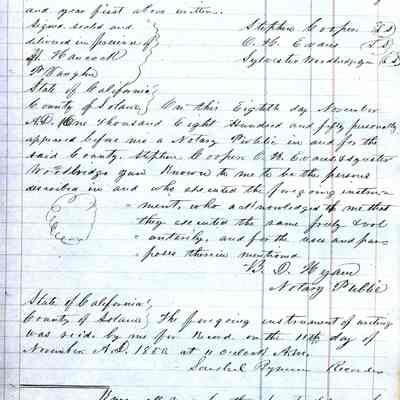 and year first above written.
Signed sealed and
Stephen Cooper
delivered in presence of
O. H. Evans
Hancock
Sylvester Woodbridge
W Vaughn
State of California
County of Solano } On this Eighth day November
A.D. One thousand Eight Hundred and fifty personally
appeared before me a Notary Public in and for the
said County. Stephen Cooper O. H. Evans & Sylvester
Woodbridge Known to me to be the persons
described in and who executed the foregoing instru-
ment, who acknowledged to me that
they executed the same freely & vol
untarily, and for the uses and pur
poses therein mentioned
B. D. Hyam
Notary Public
State of California
County of Solano } The foregoing instrument of writing
was recd. by me for Record on the 11th day of
November A.D. 1850 at 11 oclock A.M.
Recorder